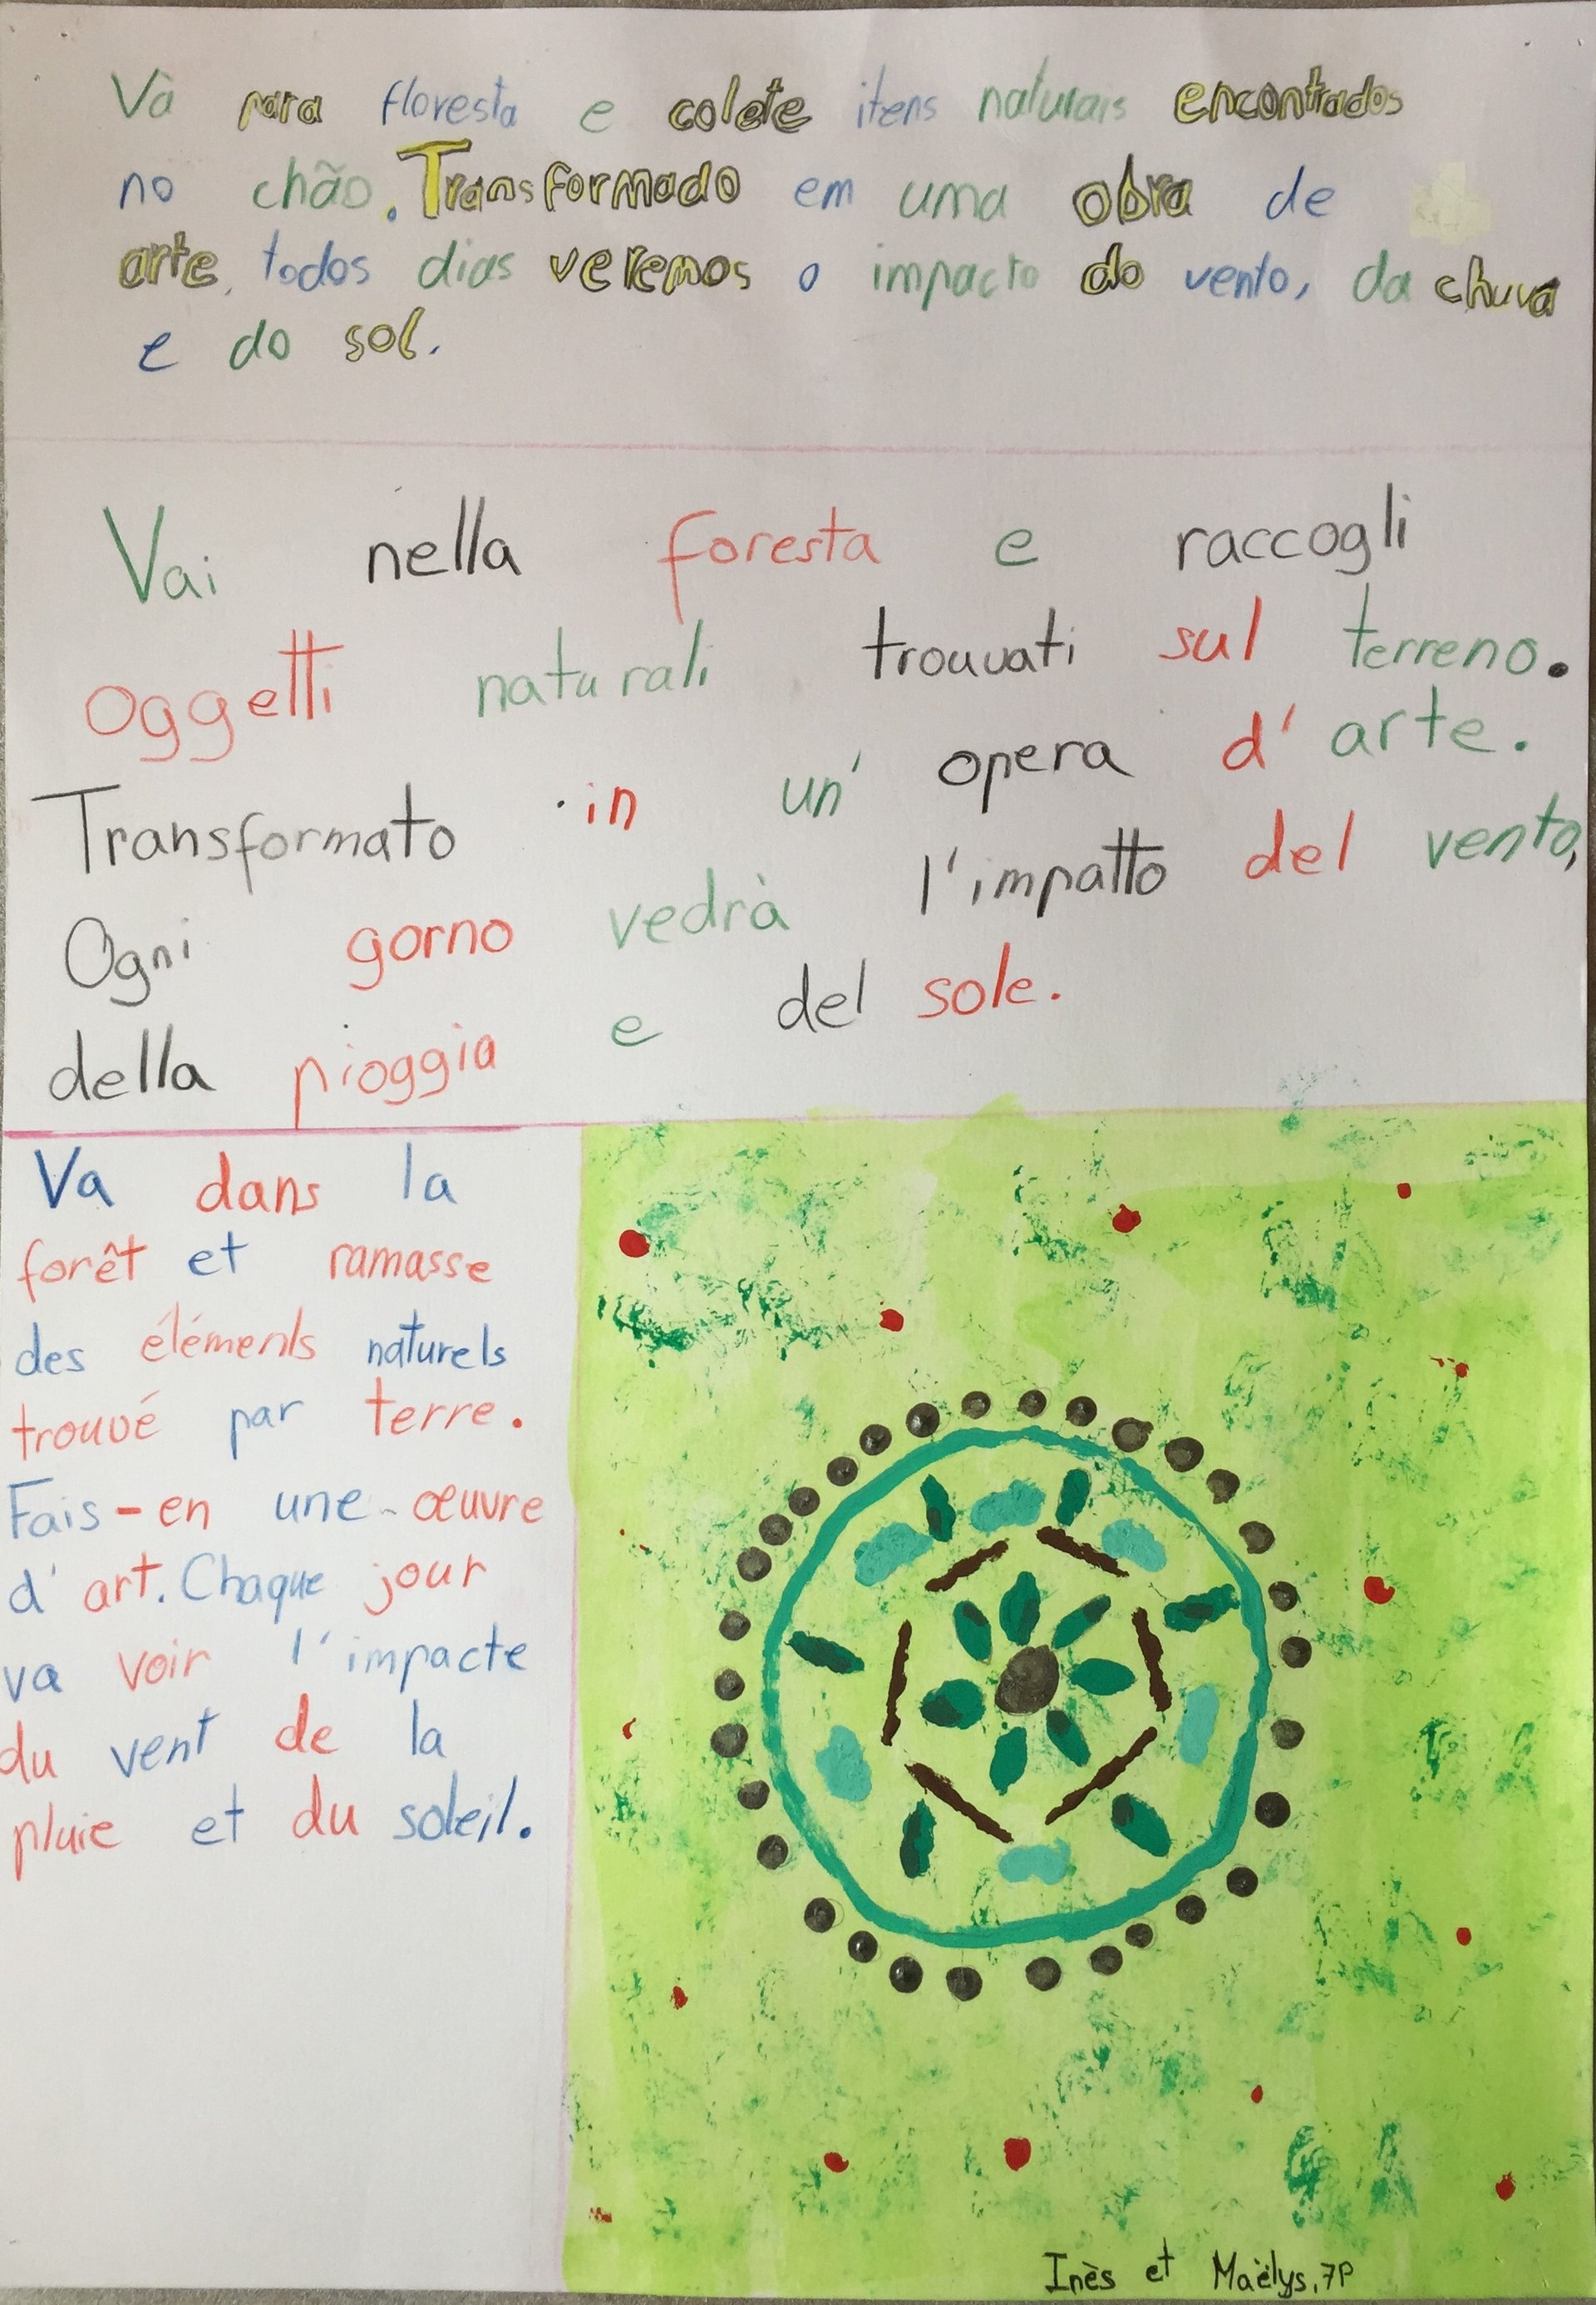 Và para floresta e colete itens naturais encontrados
no chão. Transformado em uma obra de
arte, todos dias veremos o impacto do vento, da chuva
e do sol.
Vai nella foresta e raccogli
oggetti naturali trouvati sul terreno.
Transformato in un' opera d'arte.
Ogni gorno vedrà l'impatto del vento,
della pioggia e del sole.
Va dans la
forêt et ramasse
des éléments naturels
trouvé par terre.
Fais-en une œuvre
d'art. Chaque jour
va voir l'impacte
du vent de la
pluie et du soleil.
Inès et Maëlys, 7P